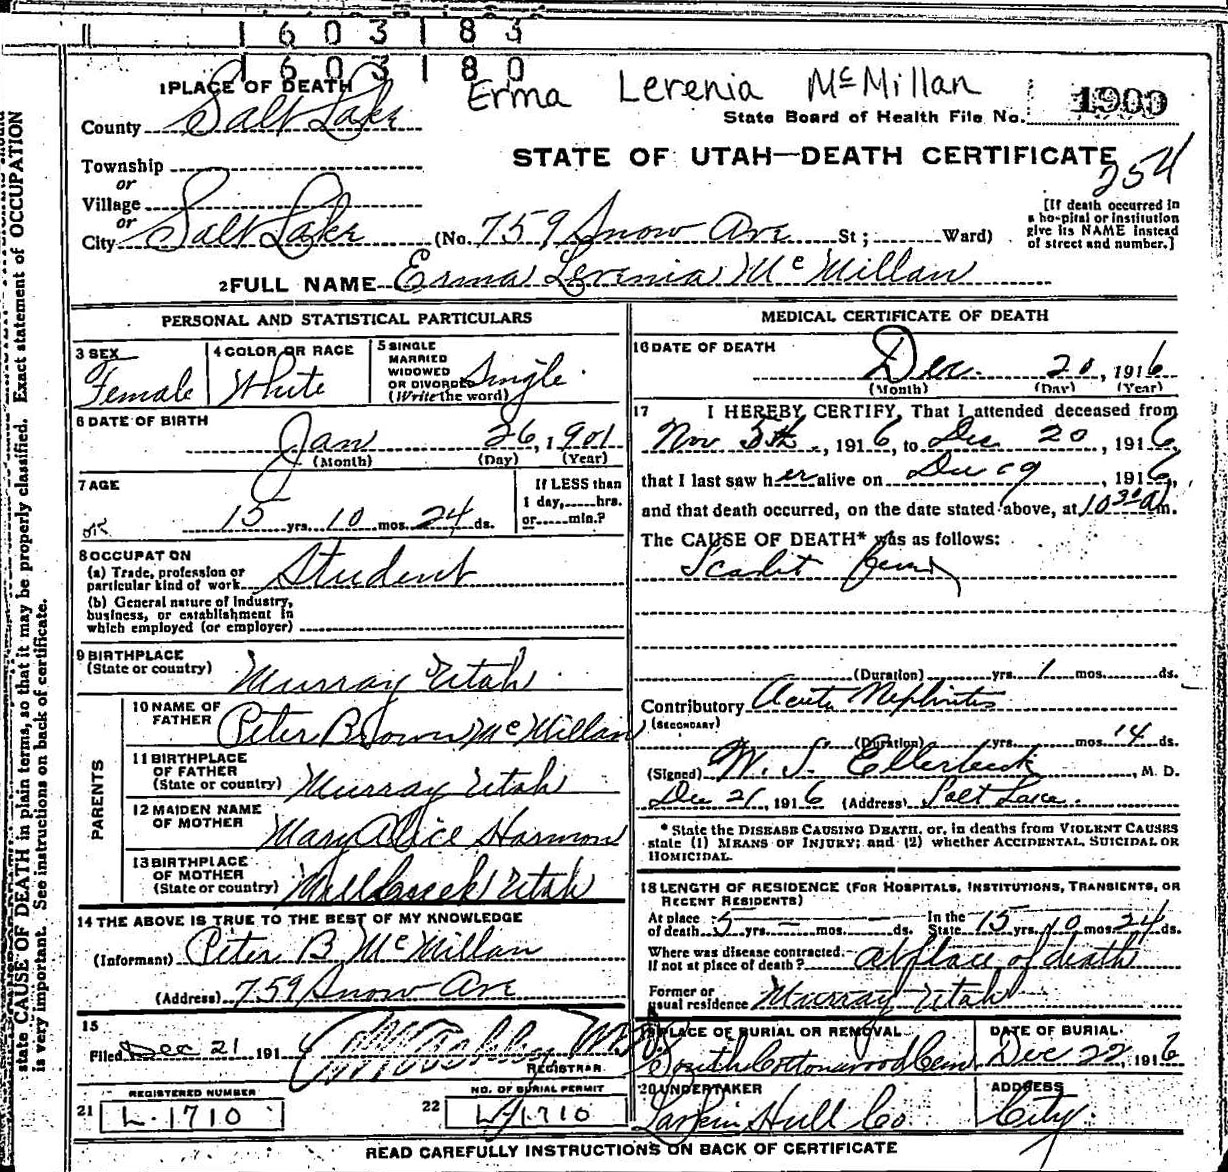 1603183
1603180
1 PLACE OF DEATH Erma Lerenia McMillan
County Salt Lake
State Board of Health File No. 1900
Township
STATE OF UTAH—DEATH CERTIFICATE
254
or
Village
or
City Salt Lake (No. 759 Snow Ave St; Ward)
[If death occurred in
a hospital or institution
give its NAME instead
of street and number.]
2 FULL NAME Erma Lerenia McMillan
PERSONAL AND STATISTICAL PARTICULARS
3 SEX
Female
4 COLOR OR RACE
White
5 SINGLE
MARRIED
WIDOWED
OR DIVORCED
(Write the word)
Single
6 DATE OF BIRTH
Jan 26, 1901
(Month) (Day) (Year)
7 AGE
15 yrs. 10 mos. 24 ds.
If LESS than
1 day, hrs.
or min.?
8 OCCUPATION
(a) Trade, profession or
particular kind of work Student
(b) General nature of industry,
business, or establishment in
which employed (or employer)
9 BIRTHPLACE
(State or country) Murray Utah
PARENTS
10 NAME OF
FATHER Peter Brown McMillan
11 BIRTHPLACE
OF FATHER
(State or country) Murray Utah
12 MAIDEN NAME
OF MOTHER Mary Alice Harmon
13 BIRTHPLACE
OF MOTHER
(State or country) Mill Creek Utah
14 THE ABOVE IS TRUE TO THE BEST OF MY KNOWLEDGE
(Informant) Peter B McMillan
(Address) 759 Snow Ave
15
Filed Dec 21 191
REGISTRAR
REGISTERED NUMBER
21 L-1710
NO. OF BURIAL PERMIT
22 L-1710
MEDICAL CERTIFICATE OF DEATH
16 DATE OF DEATH
Dec. 20, 1916
(Month) (Day) (Year)
17 I HEREBY CERTIFY, That I attended deceased from
Nov 5th, 1916, to Dec 20, 1916,
that I last saw her alive on Dec 19, 1916,
and that death occurred, on the date stated above, at 10 30 am.
The CAUSE OF DEATH* was as follows:
Scarlet Fever
(Duration) yrs. 1 mos. ds.
Contributory Acute Nephritis
(SECONDARY)
(Duration) yrs. mos. 14 ds.
(Signed) W. S. Ellerbeck, M. D.
Dec 21, 1916 (Address) Salt Lake.
* State the DISEASE CAUSING DEATH, or, in deaths from VIOLENT CAUSES
state (1) MEANS OF INJURY; and (2) whether ACCIDENTAL, SUICIDAL OR
HOMICIDAL.
18 LENGTH OF RESIDENCE (FOR HOSPITALS, INSTITUTIONS, TRANSIENTS, OR
RECENT RESIDENTS)
At place
of death 5 yrs. - mos. ds. In the
State 15 yrs. 10 mos. 24 ds.
Where was disease contracted.
If not at place of death? at place of death
Former or
usual residence Murray Utah
19 PLACE OF BURIAL OR REMOVAL
South Cottonwood Cem
DATE OF BURIAL
Dec 22, 1916
20 UNDERTAKER
Larkin Hull Co.
ADDRESS
City.
READ CAREFULLY INSTRUCTIONS ON BACK OF CERTIFICATE
state CAUSE OF DEATH in plain terms, so that it may be properly classified. Exact statement of OCCUPATION
is very important. See instructions on back of certificate.